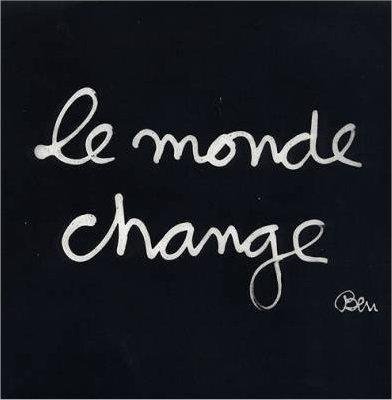 le monde
change
Ben